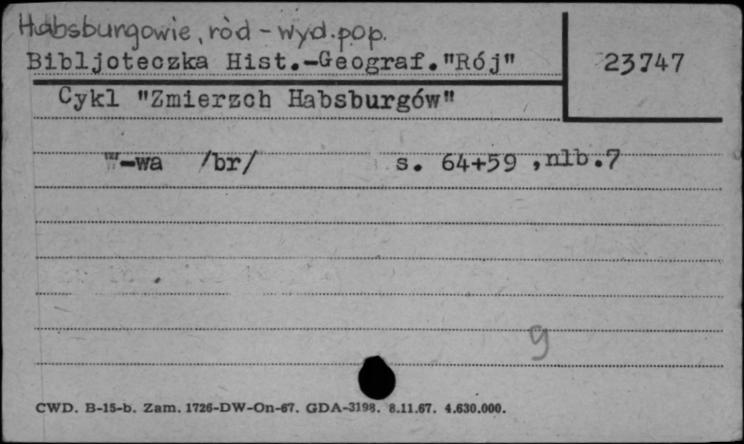 Habsburgowie, ród - wyd. pop.
Bibljoteczka Hist.-Geograf."Rój"
23747
Cykl "Zmierzch Habsburgów"
W-wa /br/ s. 64+59 ,nlb.7
9
CWD. B-15-b. Zam. 1726-DW-On-67. GDA-3198. 8.11.67. 4.630.000.